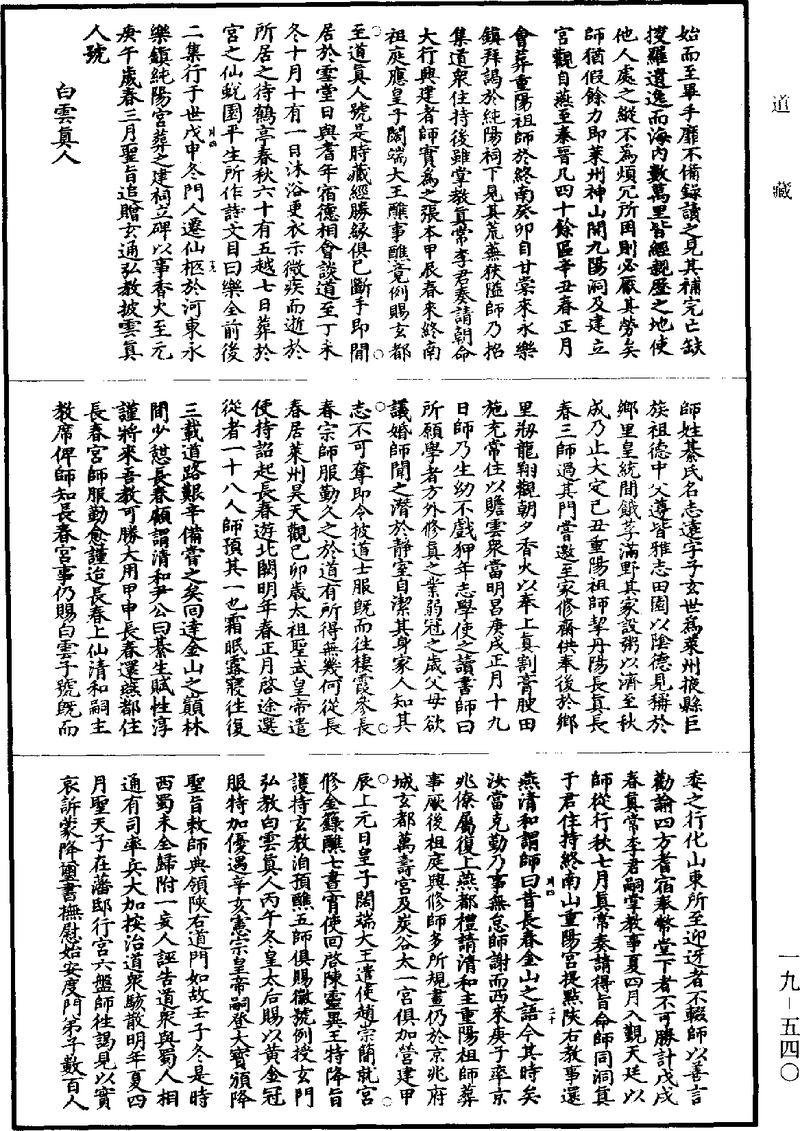 道藏
始而至畢手靡不備錄讀之見其補完亡缺
搜羅遺逸而海內數萬里皆經親歷之地使
他人處之縱不為煩冗所困則必厭其勞矣
師猶假餘力即萊州神山開九陽洞及建立
宮觀自燕至秦晉凡四十餘區辛丑春正月
會葬重陽祖師於終南癸卯自甘棠來永樂
鎮拜謁於純陽祠下見其荒蕪狹隘師乃招
集道衆住持後雖掌教真常李君奏請朝命
大行興建者師實為之張本甲辰春來終南
祖庭應皇子闊端大王醮事醮竟例賜玄都
至道真人號是時藏經勝緣俱已斷手即閒
居於雲堂日與耆年宿德相會談道至丁未
冬十月十有一日沐浴更衣示微疾而逝於
所居之待鶴亭春秋六十有五越七日葬於
宮之仙蛻園平生所作詩文目曰樂全前後
二集行于世戊申冬門人遷仙柩於河東永
樂鎮純陽宮葬之建祠立碑以事香火至元
庚午歲春三月聖旨追贈玄通弘教披雲真
人號
白雲真人
師姓綦氏名志遠字子玄世為萊州掖縣巨
族祖德中父遵皆雅志田園以陰德見稱於
鄉里皇統間餓莩滿野其家設粥以濟至秋
成乃止大定己丑重陽祖師挈丹陽長真長
春三師過其門嘗邀至家修齋供奉後於鄉
里剏龍翔觀朝夕香火以奉上真割膏腴田
施充常住以贍雲衆當明昌庚戌正月十九
日師乃生幼不戲狎年志學使之讀書師曰
所願學者方外修真之業弱冠之歲父母欲
議婚師聞之潛於靜室自潔其身家人知其
志不可奪即令披道士服既而往棲霞參長
春宗師服勤久之於道有所得無幾何從長
春居萊州昊天觀己卯歲太祖聖武皇帝遣
使持詔起長春遊北闕明年春正月啓途選
從者一十八人師預其一也霜眠露寢往復
三載道路艱辛備嘗之矣回達金山之巔林
間少憩長春顧謂清和尹公曰綦生賦性淳
謹將來吾教可勝大用甲申長春還燕都住
長春宮師服勤愈謹迨長春上仙清和嗣主
教席俾師知長春宮事仍賜白雲子號既而
委之行化山東所至迎迓者不輟師以善言
勸諭四方耆宿奉幣堂下者不可勝計戊戌
春真常李君嗣掌教事夏四月入觀天廷以
師從行秋七月真常奏請得旨命師同洞真
于君住持終南山重陽宮提點陝右教事還
燕清和謂師曰昔長春金山之語今其時矣
汝當克勤乃事無怠師謝而西來庚子率京
兆僚屬復上燕都禮請清和主重陽祖師葬
事厥後祖庭興修師多所規畫仍於京兆府
城玄都萬壽宮及炭谷太一宮俱加營建甲
辰上元日皇子闊端大王遣使趙崇簡就宮
修金籙醮七晝宵使回啓陳靈異王特降旨
護持玄教洎預醮五師俱賜徽號例授玄門
弘教白雲真人丙午冬皇太后賜以黃金冠
服特加優遇辛亥憲宗皇帝嗣登大寶頒降
聖旨敕師典領陝右道門如故壬子冬是時
西蜀未全歸附一妄人誣告道衆與蜀人相
通有司率兵大加按治道衆駭散明年夏四
月聖天子在藩邸行宮六盤師往謁見以實
哀訴蒙降璽書撫慰始安度門弟子數百人
一九－五四〇